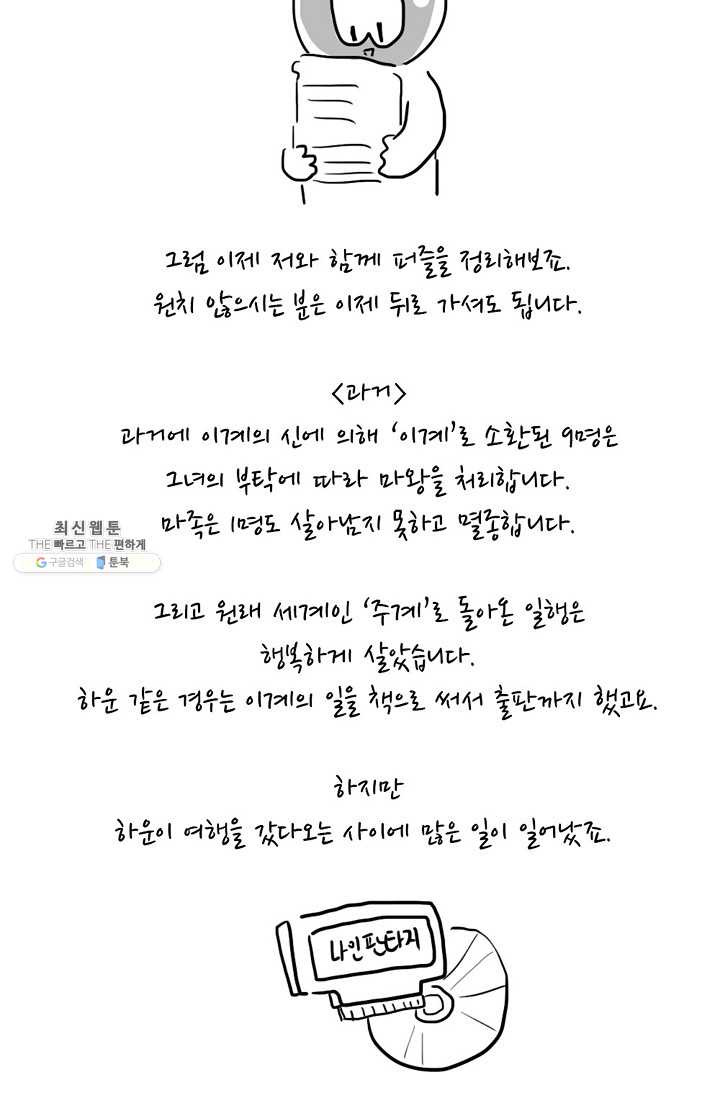 그럼 이제 저와 함께 퍼즐을 정리해보죠.
원치 않으시는 분은 이제 뒤로 가셔도 됩니다.
<과거>
과거에 이계의 신에 의해 '이계'로 소환된 9명은
그녀의 부탁에 따라 마왕을 처리합니다.
마족은 1명도 살아남지 못하고 멸종합니다.
최신웹툰
THE 빠르고 THE 편하게
구글검색 툰북
그리고 원래 세계인 '주계'로 돌아온 일행은
행복하게 살았습니다.
하운 같은 경우는 이계의 일을 책으로 써서 출판까지 했고요.
하지만
하운이 여행을 갔다오는 사이에 많은 일이 일어났죠.
나인판타지